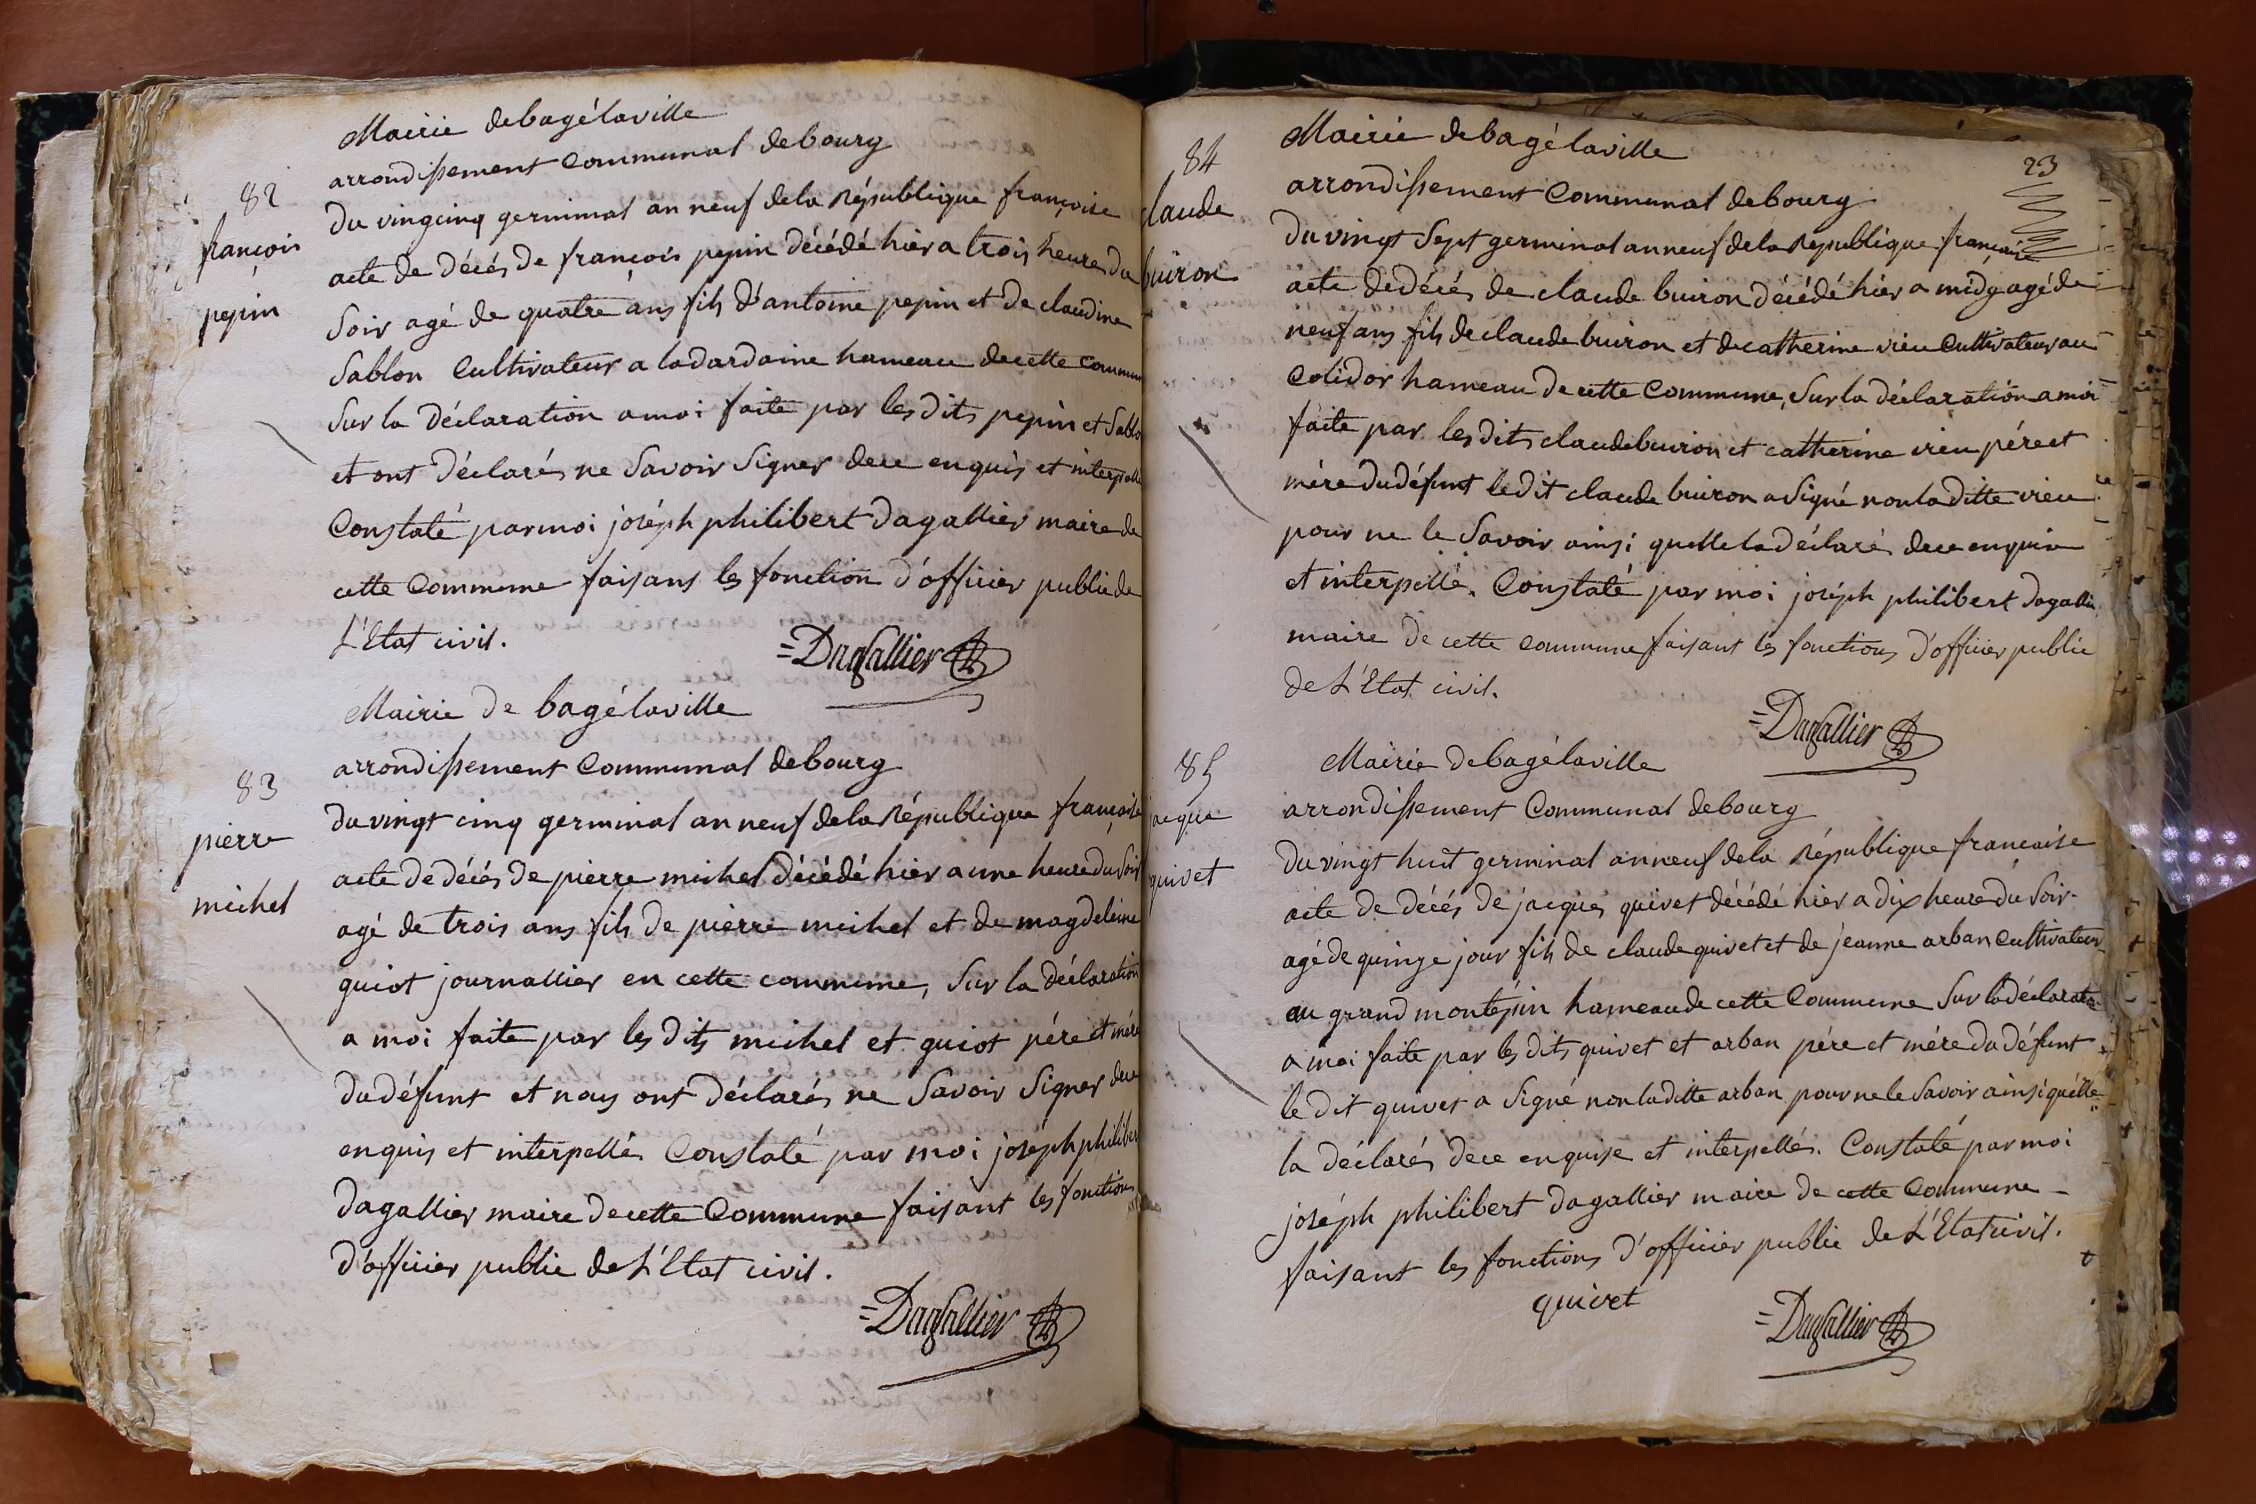 Mairie de bagé laville
arrondissement Communal de bourg
82
françois
pepin
Du vingcinq germinal an neuf de la République françoise
acte de décés de françois pepin décédé hier a trois heures du
Soir agé de quatre ans fils d'antoine pepin et de claudine
Sablon Cultivateur a la dardaine hameau de cette commun
Sur la déclaration a moi faite par les dits pepin et Sablo
et ont déclarés ne Savoir Signer de ce enquis et interpellé
Constaté par moi joséph philibert Dagallier maire de
cette Commune faisans les fonction d'officier public de
L'Etat civil.
=Dagallier
Mairie de bagé laville
arrondissement Communal de bourg
83
pierre
michel
du vingt cinq germinal an neuf de la République françoise
acte de décés de pierre michel décédé hier a une heure du Soir
agé de trois ans fils de pierre michel et de magdeleine
guiot journallier en cette commune, Sur la déclaration
a moi faite par les dits michel et guiot pére et mére
du défunt et nous ont déclarés ne Savoir Signer de ce
enquis et interpellés Constaté par moi joséph philiber
Dagallier maire de cette Commune faisant les fonctions
d'officier public de L'Etat civil.
=Dagallier
23
Mairie de bagé laville
arrondissement Communal de bourg
84
claude
buiron
Du vingt Sept germinal an neuf de la République française
acte de décés de claude buiron décédé hier a midy agé de
neuf ans fils de claude buiron et de catherine vieu Cultivateur au
Colidor hameau de cette Commune, Sur la déclaration a moi
faite par les dits claude buiron et catherine vieu pére et
mére du défunt le dit claude buiron a Signé non la ditte vieu
pour ne le Savoir ainsi quelle la déclarés de ce enquise
et interpellé. Constaté par moi joséph philibert Dagallier
maire de cette commune faisant les fonctions d'officier public
de L'Etat civil.
=Dagallier
Mairie de bagé laville
arrondissement Communal de bourg
85
jacque
quivet
Du vingt huit germinal an neuf de la République francaise
acte de décés de jacques quivet décédé hier a dix heure du Soir
agé de quinze jour fils de claude quivet et de jeanne arban Cultivateur
au grand montépin hameau de cette Commune Sur la déclaration
a moi faite par les dits quivet et arban pére et mére du défunt
le dit quivet a Signé non la ditte arban pour ne le Savoir ainsi quélle
la déclarés de ce enquise et interpellés. Constaté par moi
joséph philibert Dagallier maire de cette Commune
faisant les fonctions d'officier public de L'Etat civil.
quivet
=Dagallier